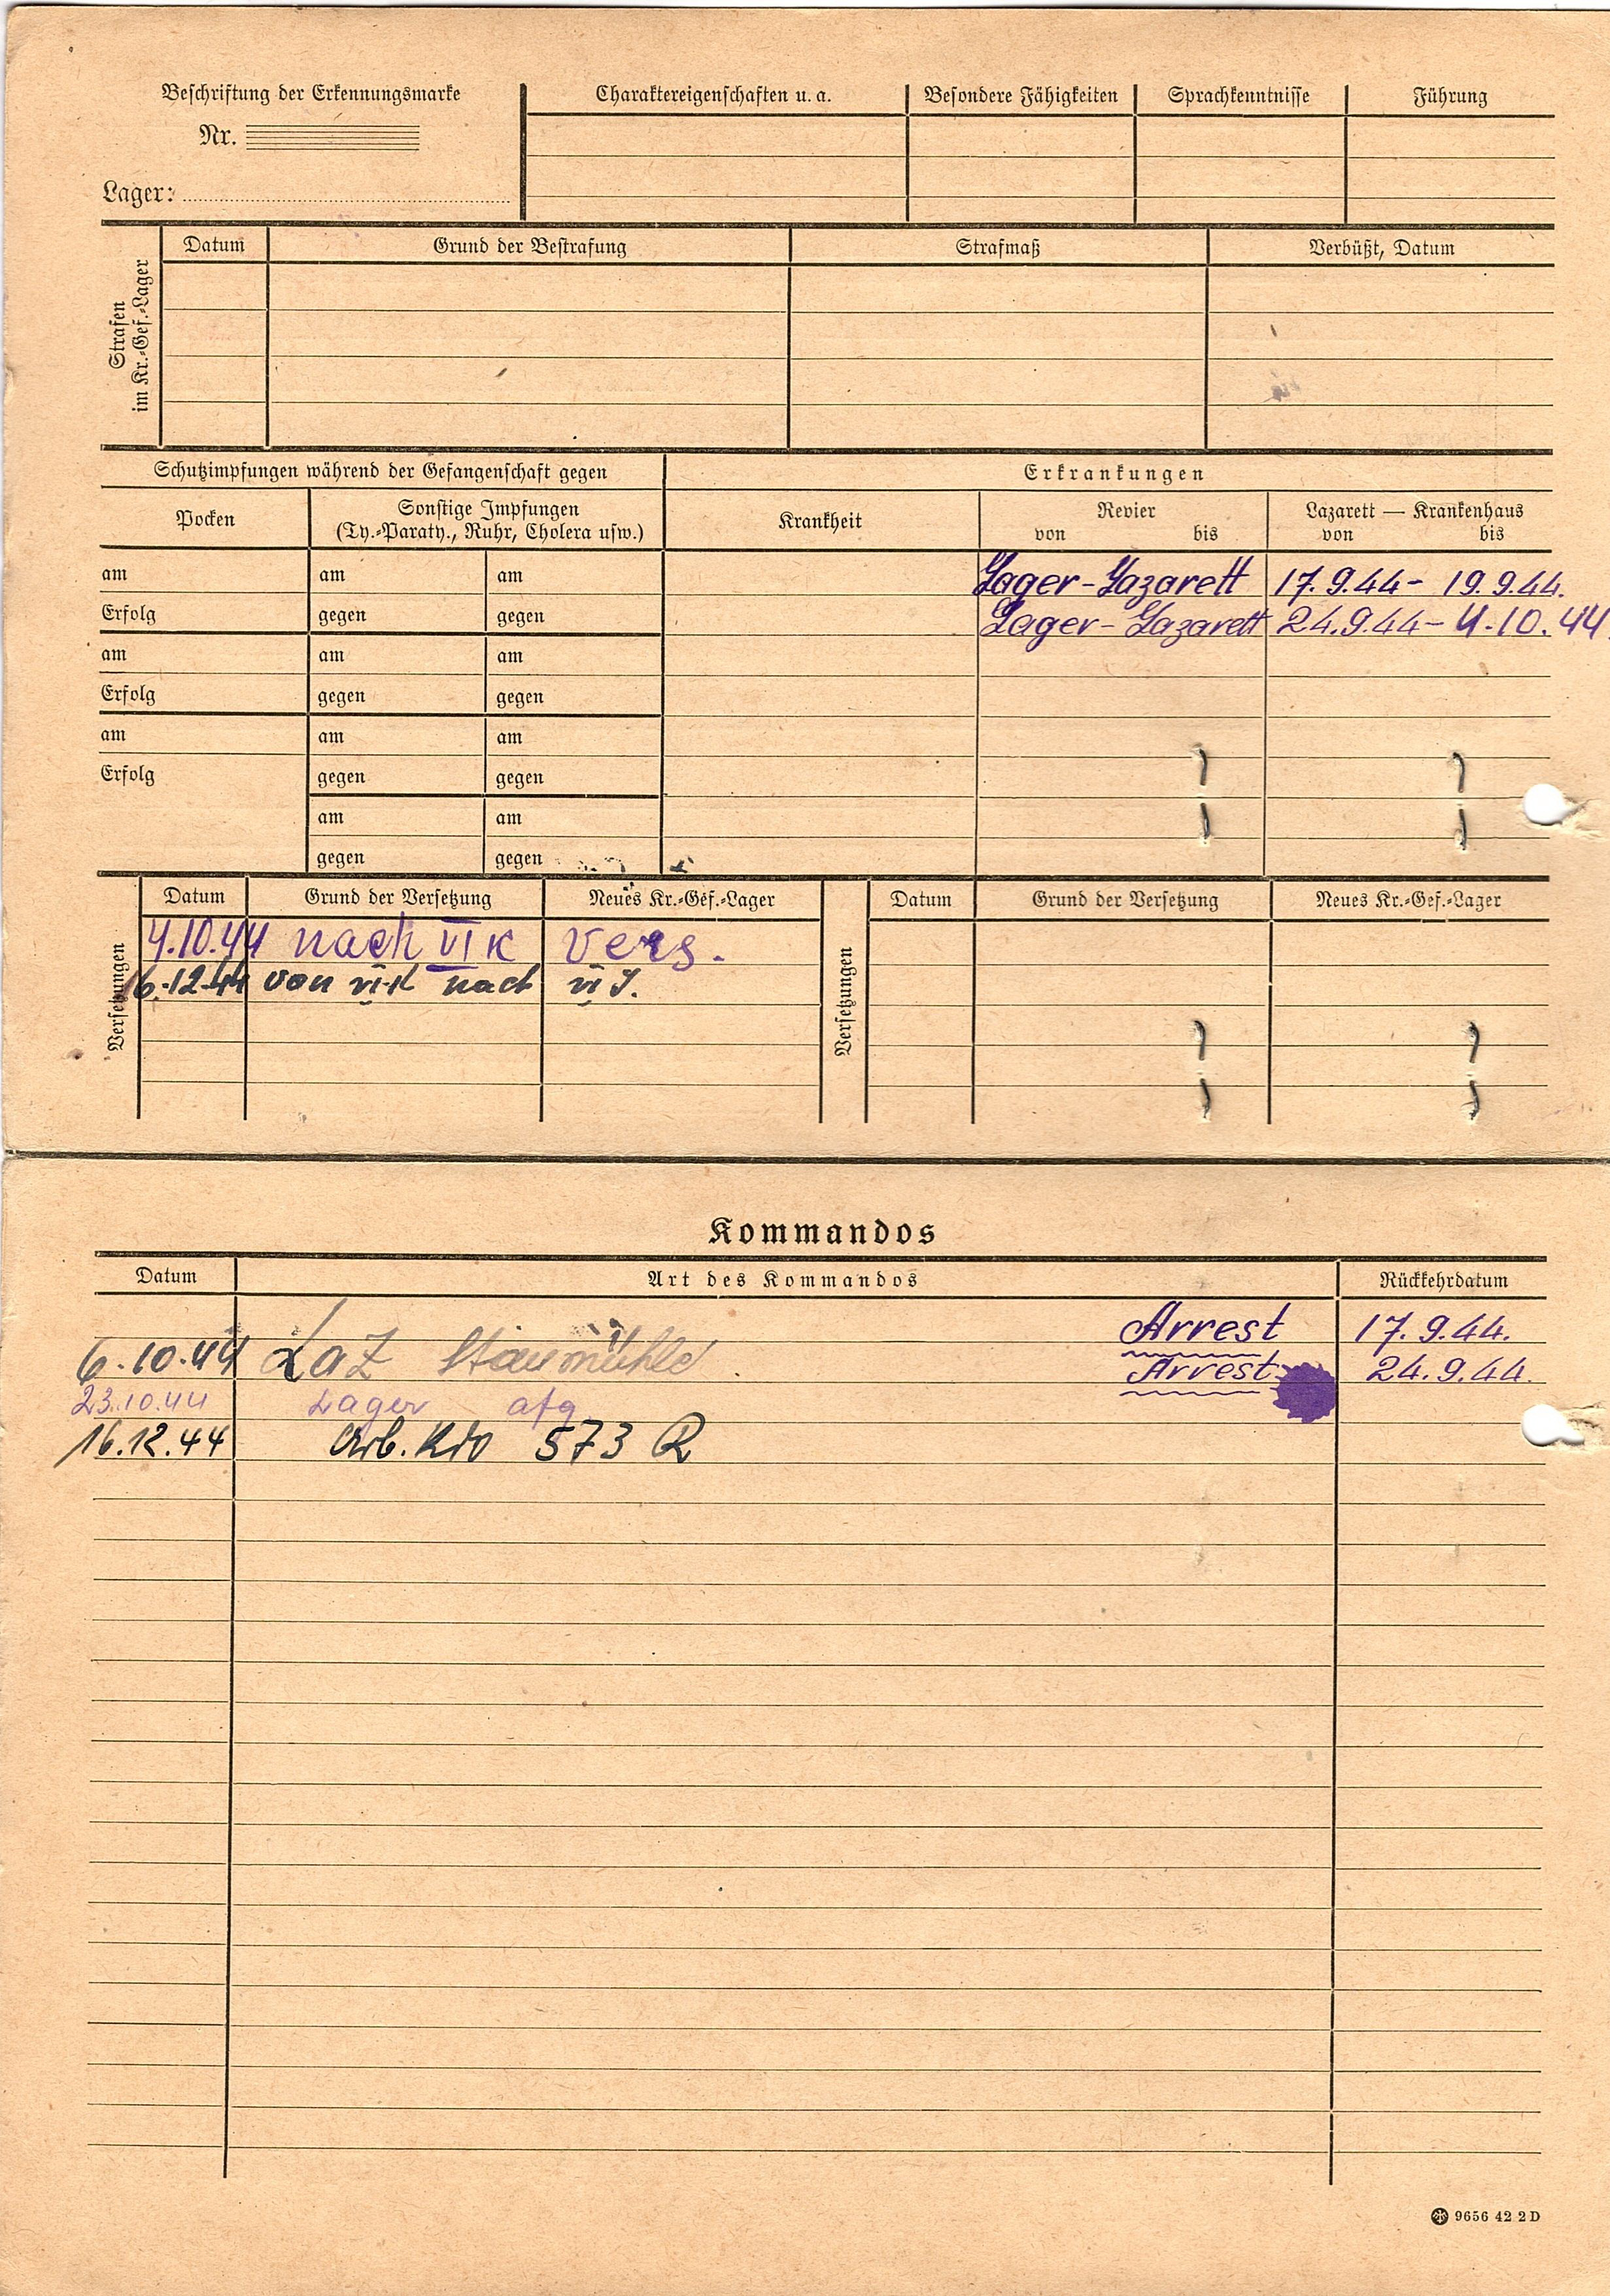 Beschriftung der Erkennungsmarke
Nr.
Lager:
Charaktereigenschaften u. a.
Besondere Fähigkeiten
Sprachkenntnisse
Führung
Strafen
im Kr.-Gef.-Lager
Datum
Grund der Bestrafung
Strafmaß
Verbüßt, Datum
Schutzimpfungen während der Gefangenschaft gegen
Erkrankungen
Pocken
Sonstige Impfungen
(Ty.-Paraty., Ruhr, Cholera usw.)
Krankheit
Revier
von bis
Lazarett — Krankenhaus
von bis
am am am
Lager-Lazarett 17.9.44- 19.9.44.
Erfolg gegen gegen
Lager-Lazarett 24.9.44- 4.10.44.
am am am
Erfolg gegen gegen
am am am
Erfolg gegen gegen
am am
gegen gegen
Versetzungen
Datum Grund der Versetzung Neues Kr.-Gef.-Lager
4.10.44 nach VI K vers.
16.12.44 von VI K nach VI J.
Versetzungen
Datum Grund der Versetzung Neues Kr.-Gef.-Lager
Kommandos
Datum Art des Kommandos Rückkehrdatum
Arrest 17.9.44.
6.10.44 LaZ Staumühle. Arrest 24.9.44.
23.10.44 Lager
16.12.44 Arb. Kdo 573 R
9656 42 2 D